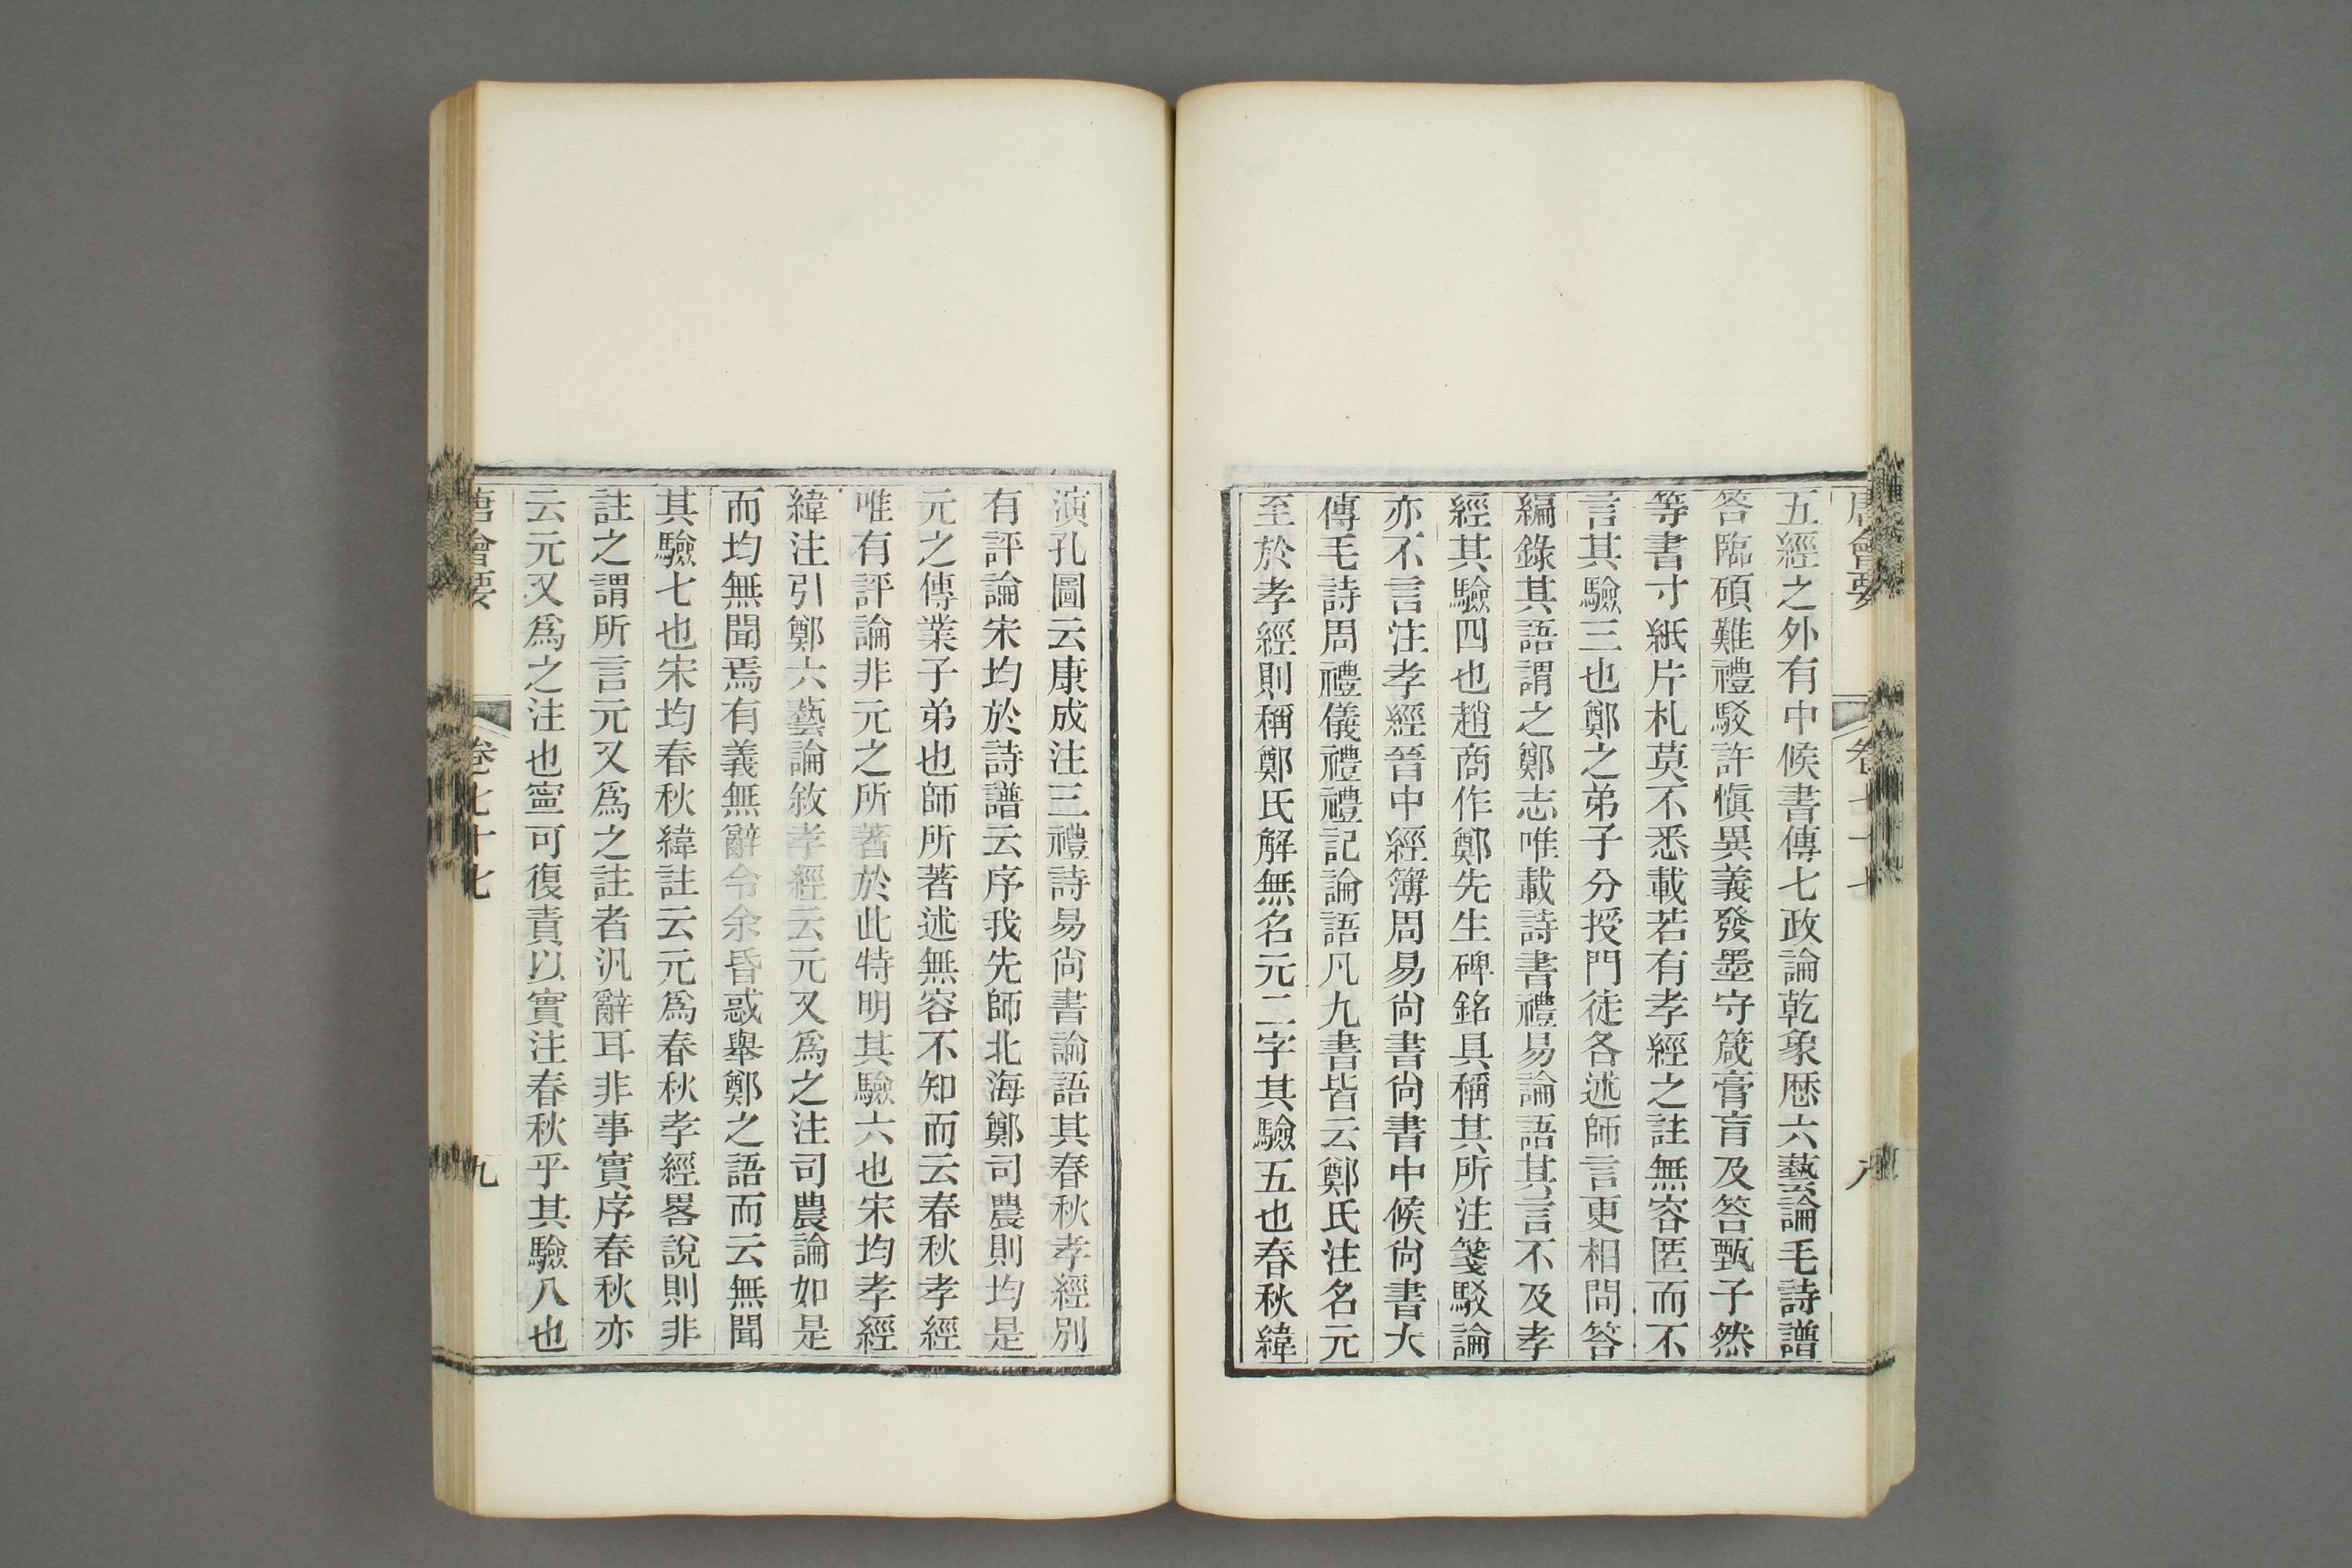 唐會要 卷七十七 八
五經之外有中候書傳七政論乾象歷六藝論毛詩譜
答臨碩難禮駁許愼異義發墨守箴膏肓及答甄子然
等書寸紙片札莫不悉載若有孝經之註無容匿而不
言其驗三也鄭之弟子分授門徒各述師言更相問答
編錄其語謂之鄭志唯載詩書禮易論語其言不及孝
經其驗四也趙商作鄭先生碑銘具稱其所注箋駁論
亦不言注孝經晉中經簿周易尙書尙書中候尙書大
傳毛詩周禮儀禮禮記論語凡九書皆云鄭氏注名元
至於孝經則稱鄭氏解無名元二字其驗五也春秋緯
演孔圖云康成注三禮詩易尙書論語其春秋孝經別
有評論宋均於詩譜云序我先師北海鄭司農則均是
元之傳業子弟也師所著述無容不知而云春秋孝經
唯有評論非元之所著於此特明其驗六也宋均孝經
緯注引鄭六藝論敘孝經云元又爲之注司農論如是
而均無聞焉有義無辭令余昏惑舉鄭之語而云無聞
其驗七也宋均春秋緯註云元爲春秋孝經畧說則非
註之謂所言元又爲之註者汎辭耳非事實序春秋亦
云元又爲之注也寧可復責以實注春秋乎其驗八也
唐會要 卷七十七 九